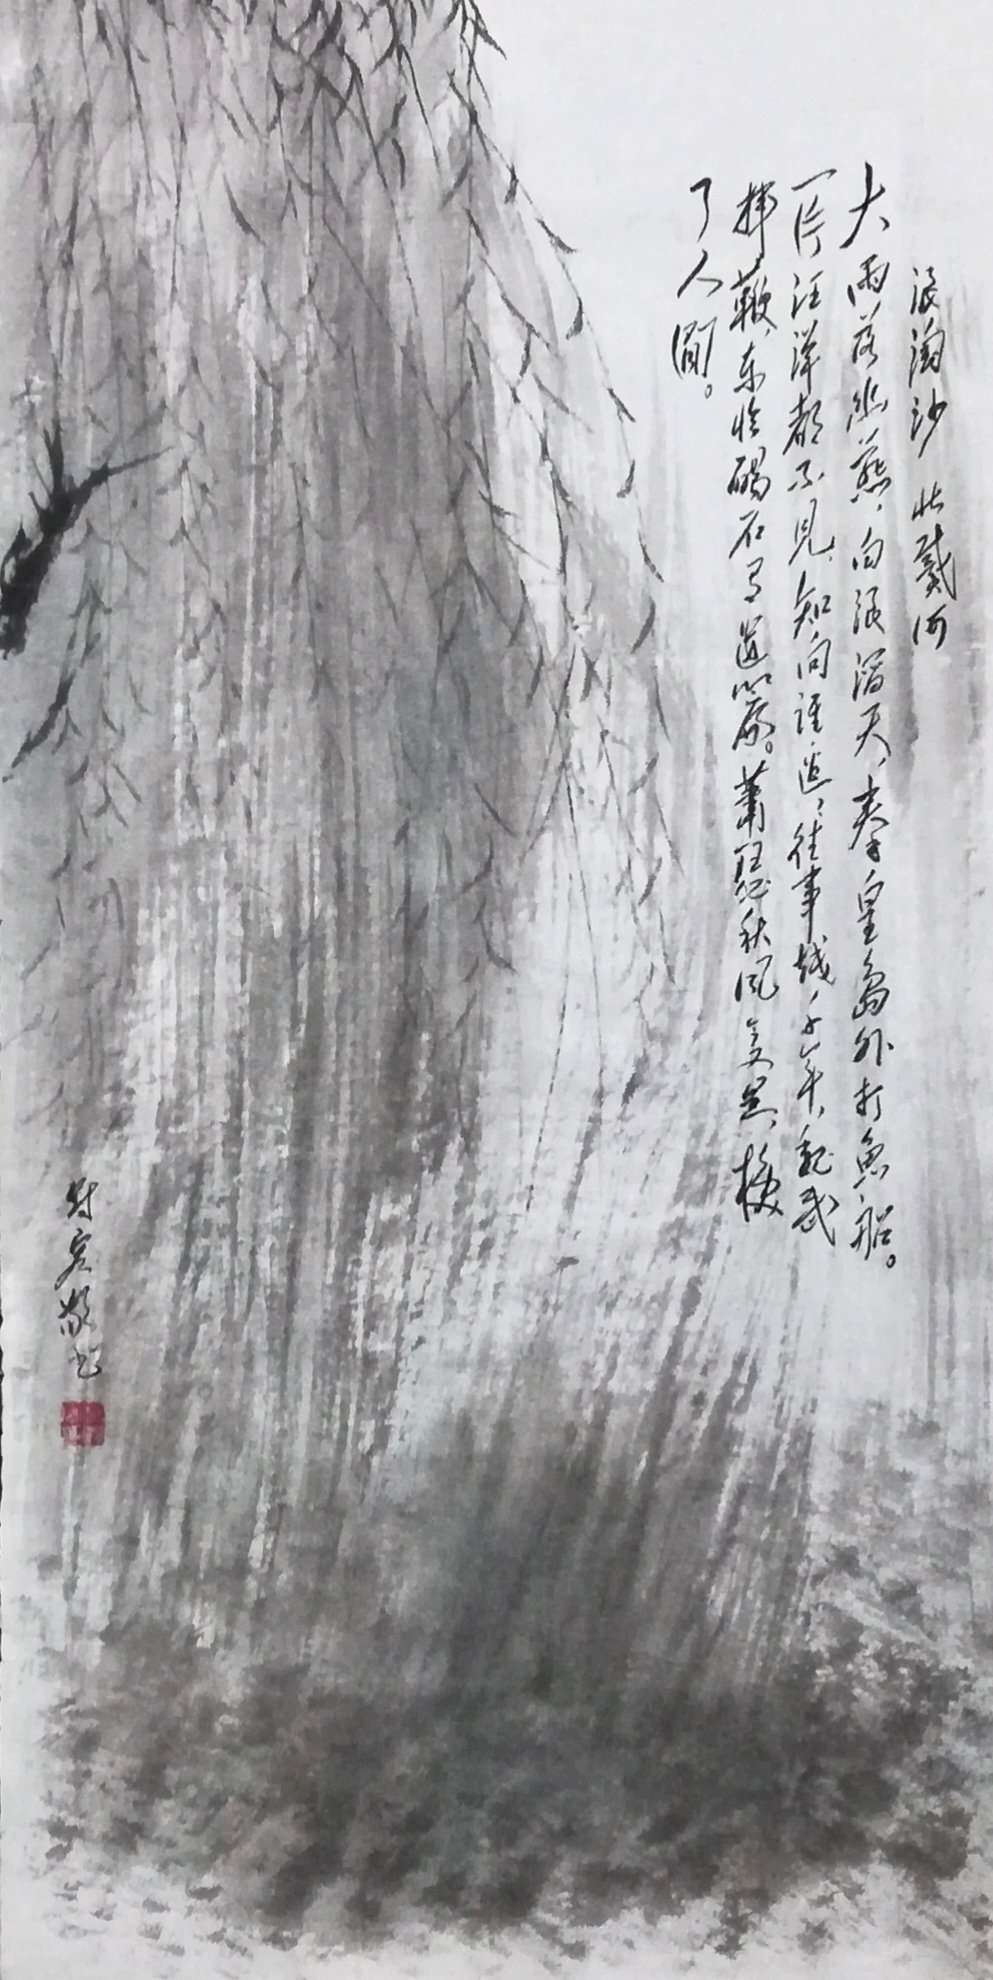 浪淘沙 北戴河
大雨落幽燕，白浪滔天，秦皇岛外打鱼船。
一片汪洋都不见，知向谁边，往事越千年，魏武
挥鞭，东临碣石有遗篇。萧瑟秋风今又是，换
了人间。
敬书